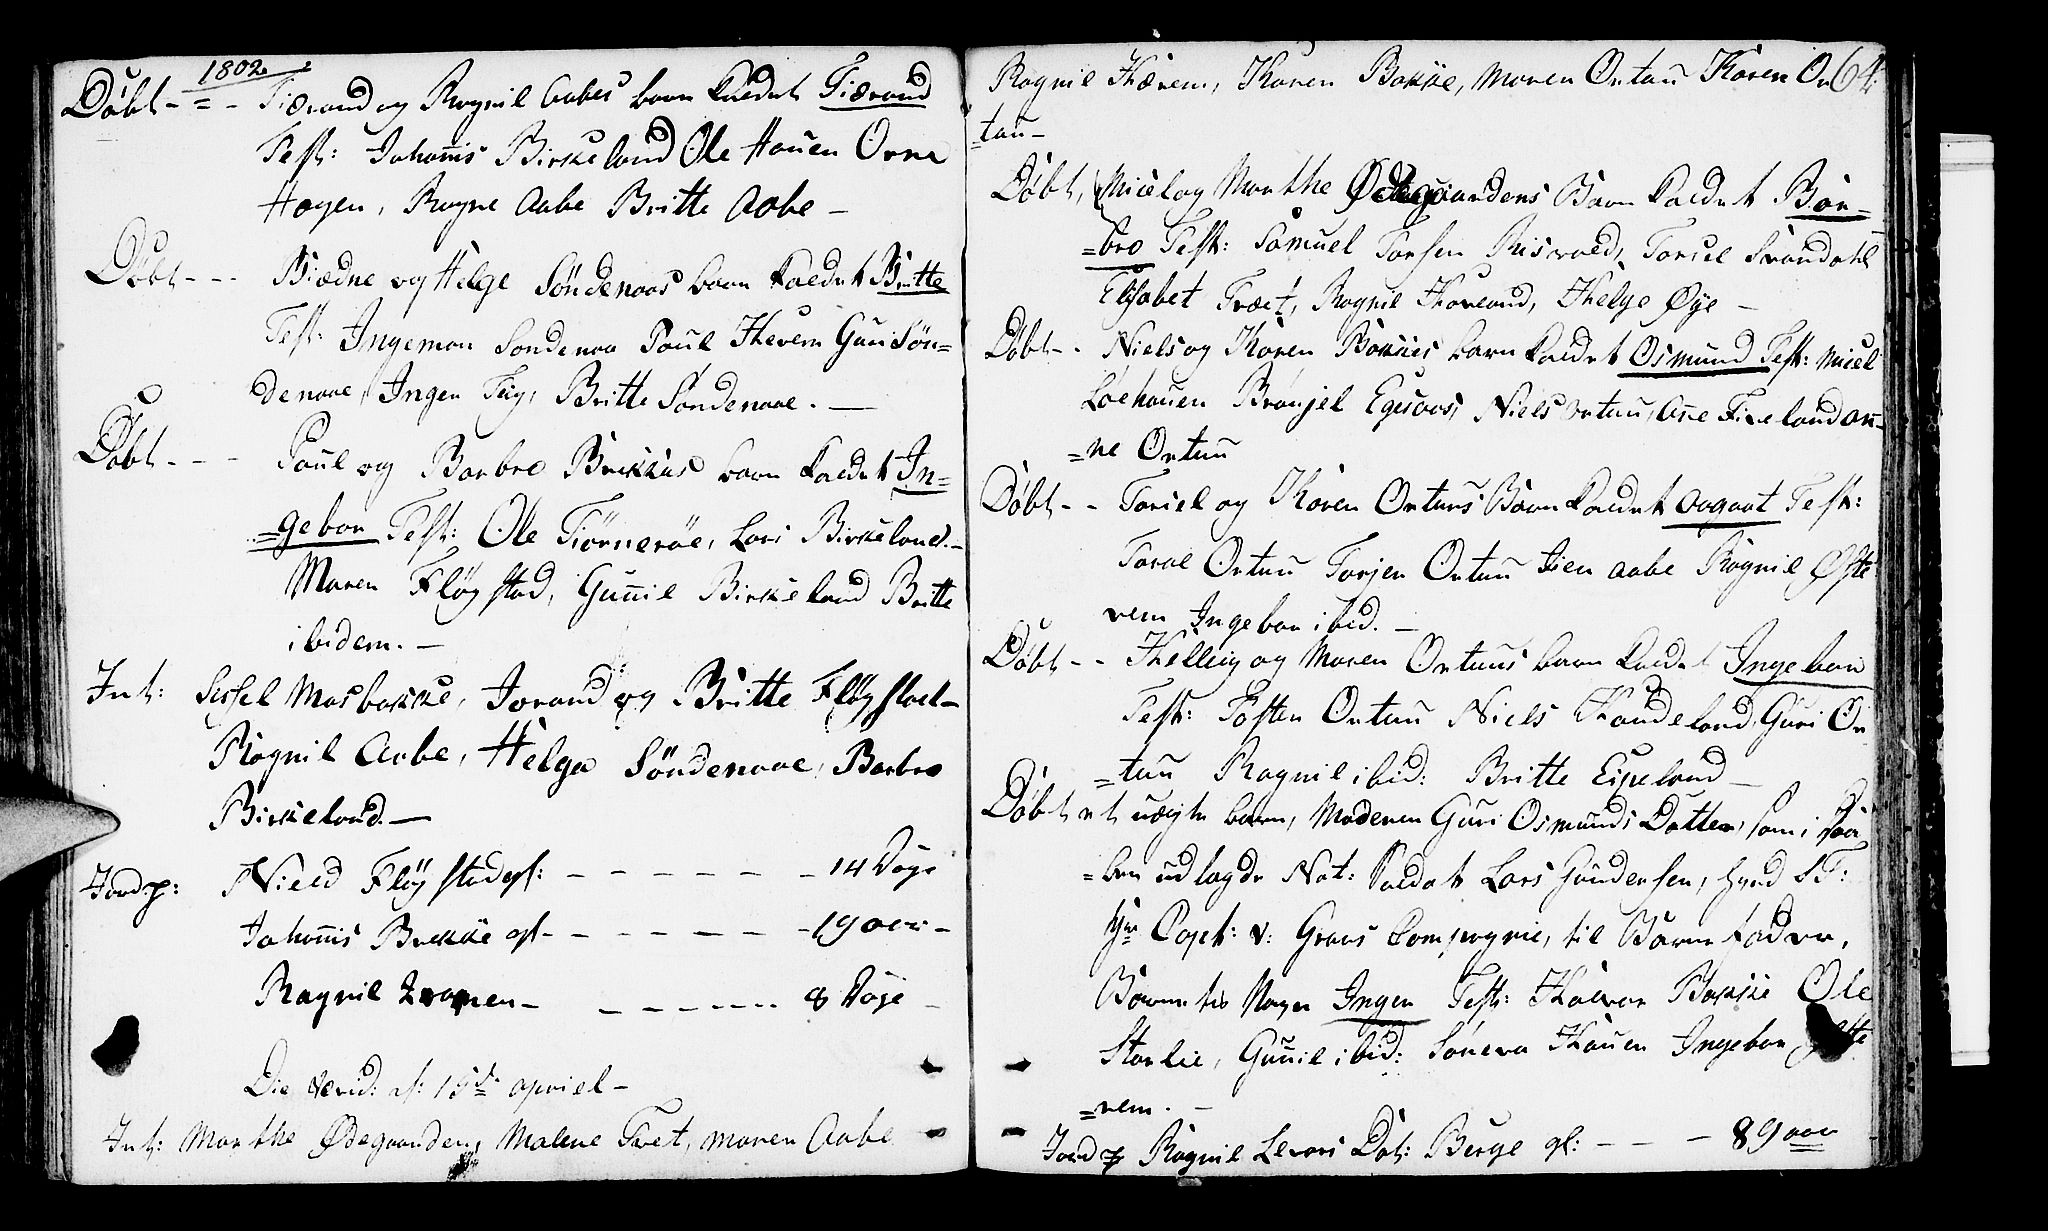 1802.
Döbt - = - Tiærand og Rognil Aabes barn kaldet Tiærand
Test: Johannis Birkeland Ole Hauen Orne
Hagen, Ragne Aabe Britte Aabe -
Döbt - - - Biædne og Helge Söndenaas barn kaldet Britte
Test: Ingeman Söndenaa Poul Hevem Guri Sön-
denaae, Inger Tuy, Britte Söndenaae. -
Döbt - - - Poul og Barbro Brekkes barn kaldet In=
=gebor Test: Ole Tiörneröe, Lars Birkeland. -
Maren Flögstad, Gunnil Birkeland Britte
ibidem. -
Int: Sissel Mosbakke, Jorand og Britte Flögstad -
Rognil Aabe, Helga Söndenaae, Barbro
Birkeland. -
Jord: Niels Flögstad gl: - - - - - - 14 Dage
Johannis Brekke gl - - - - - - - 19 aar -
Ragnil - - - - - - - 8 Dage -
Die d: 15de apriel -
Int: Marthe Ödegaarden, Malene Tvet, Maren Aabe
64
Ragnil Hærem, Karen Bakke, Maren Ortau Karen Or
=tau -
Döbt, Micel og Marthe Ödegaardens Barn kaldet Bar=
=bro Test: Samuel Torsen Risvold, Torcel Svandahl
Elisabet Tvæt, Ragnil Hovland, Helge Öye -
Döbt - - Niels og Karen Bakkes barn kaldet Osmund Test: Micel
Löehauen Brönjel Egeaas, Niels Ortau, Ane Fixeland An=
=ne Ortau
Döbt - - Torcel og Karen Ortaus Barn kaldet Aagaat Test:
Toral Ortau Torjer Ortau Aabe Ragnil Öste
rem Ingebor ibid. -
Döbt - - Helleig og Maren Ortaus barn kaldet Ingebor
Test: Tosten Ortau Niels Haudeland, Guri Or
=tau Ragnil ibid: Britte Eipeland -
Döbt et uægte barn, Moderen Guri Osmunds Datter, som i Daa
=ben udlagde Nat: Soldat Lars Gundersen, S: T:
Hr Capt: v: Graas Compagnie, til Barne fader,
Barnets Navn Ingen Test: Halvor Bakke Ole
Storlie, Gunil ibid: Söneva Hauen Ingebor Öste
=rem. -
Jord Rognil Levors Dat: Berge gl: - - - 89 aar